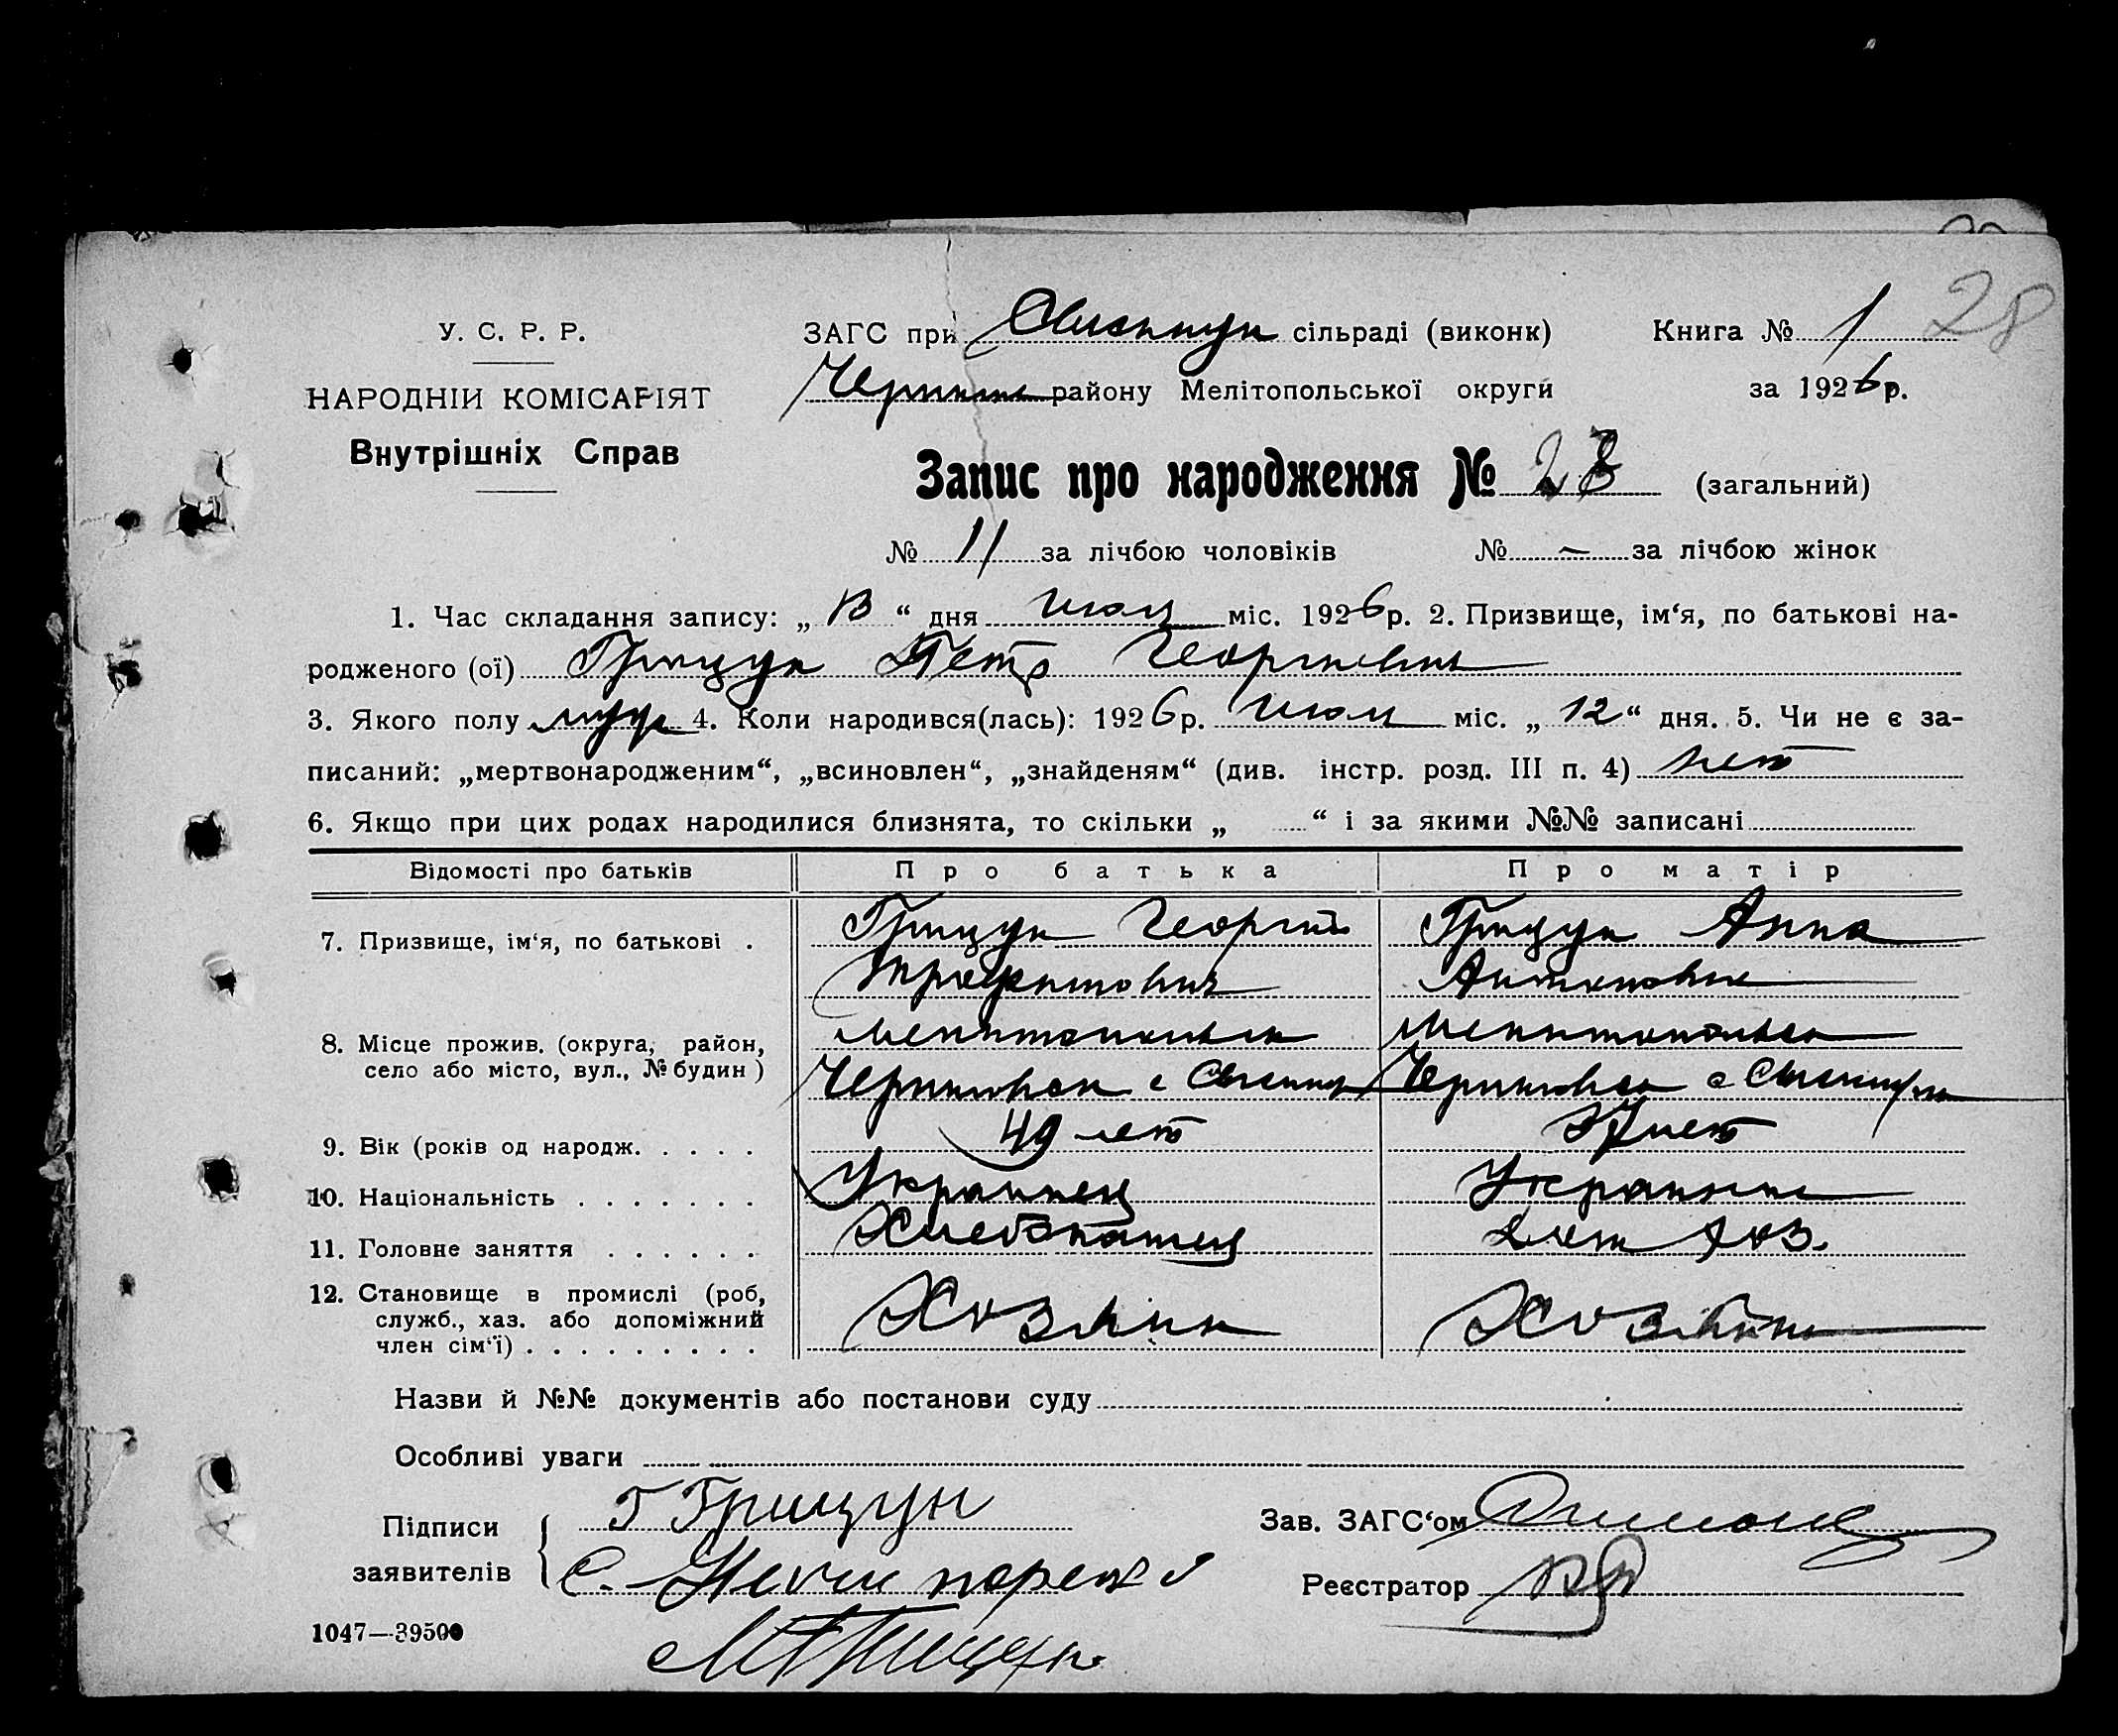 28
У. С. Р. Р.
НАРОДНІЙ КОМІСАРІЯТ
Внутрішніх Справ
ЗАГС при сільраді (виконк)
Книга № 1
району Мелітопольської округи
за 1926 р.
Запис про народження № (загальний)
№ 11 за лічбою чоловіків № – за лічбою жінок
1. Час складання запису: „ 13 “ дня Июля міс. 1926 р. 2. Призвище, ім‘я, по батькові на-
родженого (ої) Грищук Петр Георгиевич
3. Якого полу муж 4. Коли народився(лась): 1926 р. Июля міс. „ 12 “ дня. 5. Чи не є за-
писаний: „мертвонародженим“, „всиновлен“, „знайденям“ (див. інстр. розд. III п. 4) нет
6. Якщо при цих родах народилися близнята, то скільки „ “ і за якими №№ записані
Відомості про батьків Про батька Про матір
7. Призвище, ім‘я, по батькові . Грищук Георгий Грищук Анна
Трофимович Антоновна
8. Місце прожив. (округа, район, село або місто, вул., № будин) Мелитопольск Мелитопольск
Черниговск с Черниговск с
9. Вік (років од народж. . . . . 49 лет лет
10. Національність . . . . . . . Украинец Украинка
11. Головне заняття . . . . . . Хлебопашец Дом хоз.
12. Становище в промислі (роб, служб., хаз. або допоміжний член сім‘ї) . . . . . . . . . Хозяин Хозяйка
Назви й №№ документів або постанови суду
Особливі уваги
Підписи заявителів Г Грищук
С.
Зав. ЗАГС‘ом
Реєстратор
1047—39500